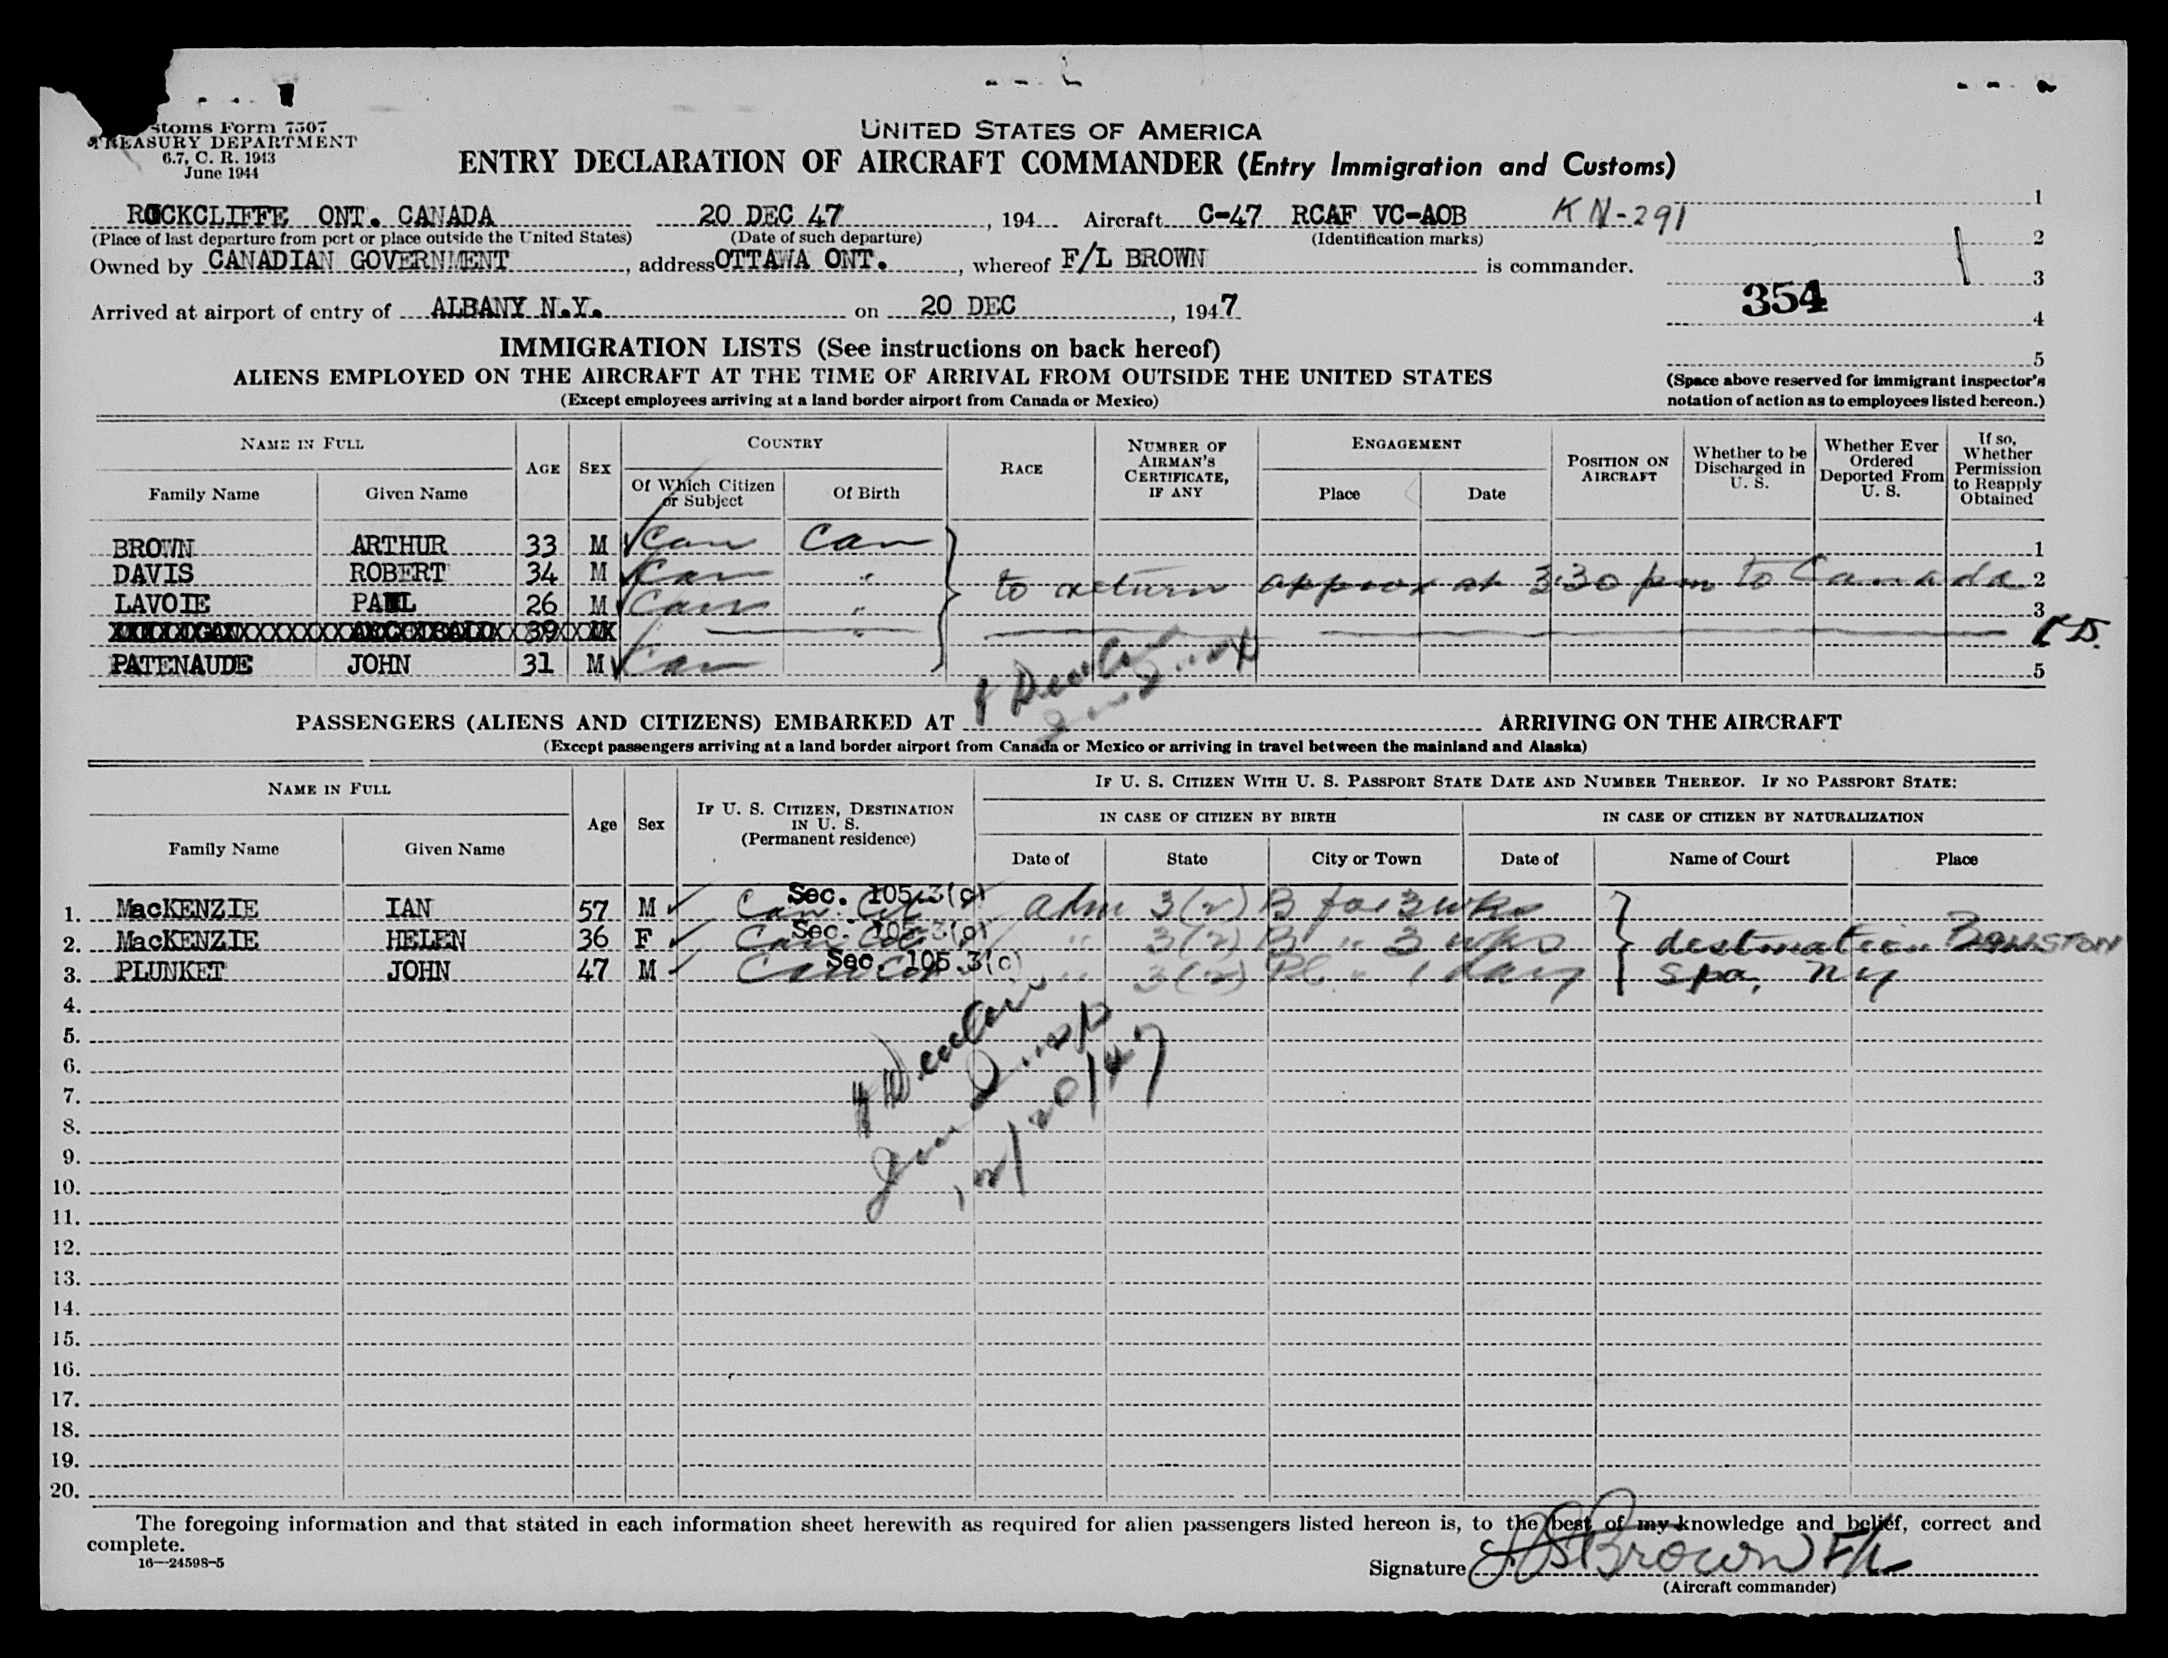 stoms Form 7507
TREASURY DEPARTMENT
6.7, C. R. 1943
June 1944
UNITED STATES OF AMERICA
ENTRY DECLARATION OF AIRCRAFT COMMANDER (Entry Immigration and Customs)
ROCKCLIFFE ONT. CANADA 20 DEC 47, 194 Aircraft C-47 RCAF VC-AOB KN-291 1
(Place of last departure from port or place outside the United States) (Date of such departure) (Identification marks) 2
Owned by CANADIAN GOVERNMENT, address OTTAWA ONT., whereof F/L BROWN is commander. 3
354
Arrived at airport of entry of ALBANY N.Y. on 20 DEC, 1947 4
IMMIGRATION LISTS (See instructions on back hereof) 5
ALIENS EMPLOYED ON THE AIRCRAFT AT THE TIME OF ARRIVAL FROM OUTSIDE THE UNITED STATES
(Except employees arriving at a land border airport from Canada or Mexico)
(Space above reserved for immigrant inspector's
notation of action as to employees listed hereon.)
NAME IN FULL AGE SEX COUNTRY RACE NUMBER OF AIRMAN'S CERTIFICATE, IF ANY ENGAGEMENT POSITION ON AIRCRAFT Whether to be Discharged in U. S. Whether Ever Ordered Deported From U. S. If so, Whether Permission to Reapply Obtained
Family Name Given Name Of Which Citizen or Subject Of Birth Place Date
BROWN ARTHUR 33 M Can Can 1
DAVIS ROBERT 34 M Can " to return approx at 3:30 pm to Canada 2
LAVOIE PAUL 26 M Can " 3
39 M "
PATENAUDE JOHN 31 M Can 5
PASSENGERS (ALIENS AND CITIZENS) EMBARKED AT ARRIVING ON THE AIRCRAFT
(Except passengers arriving at a land border airport from Canada or Mexico or arriving in travel between the mainland and Alaska)
NAME IN FULL Age Sex IF U. S. CITIZEN, DESTINATION IN U. S. (Permanent residence) IF U. S. CITIZEN WITH U. S. PASSPORT STATE DATE AND NUMBER THEREOF. IF NO PASSPORT STATE:
IN CASE OF CITIZEN BY BIRTH IN CASE OF CITIZEN BY NATURALIZATION
Family Name Given Name Date of State City or Town Date of Name of Court Place
1. MacKENZIE IAN 57 M Can Cit Sec. 105.3(c) adm 3(2) B for 3 wks
2. MacKENZIE HELEN 36 F Can Cit Sec. 105.3(c) " 3(2) B " 3 wks destination
3. PLUNKET JOHN 47 M Can Cit Sec. 105.3(c) " 3(2) " 1 day Spa, NY
4.
5.
6.
7.
8.
9.
10.
11.
12.
13.
14.
15.
16.
17.
18.
19.
20.
12/20/47
The foregoing information and that stated in each information sheet herewith as required for alien passengers listed hereon is, to the best of my knowledge and belief, correct and
complete.
16—24598-5
Signature Brown F/L
(Aircraft commander)